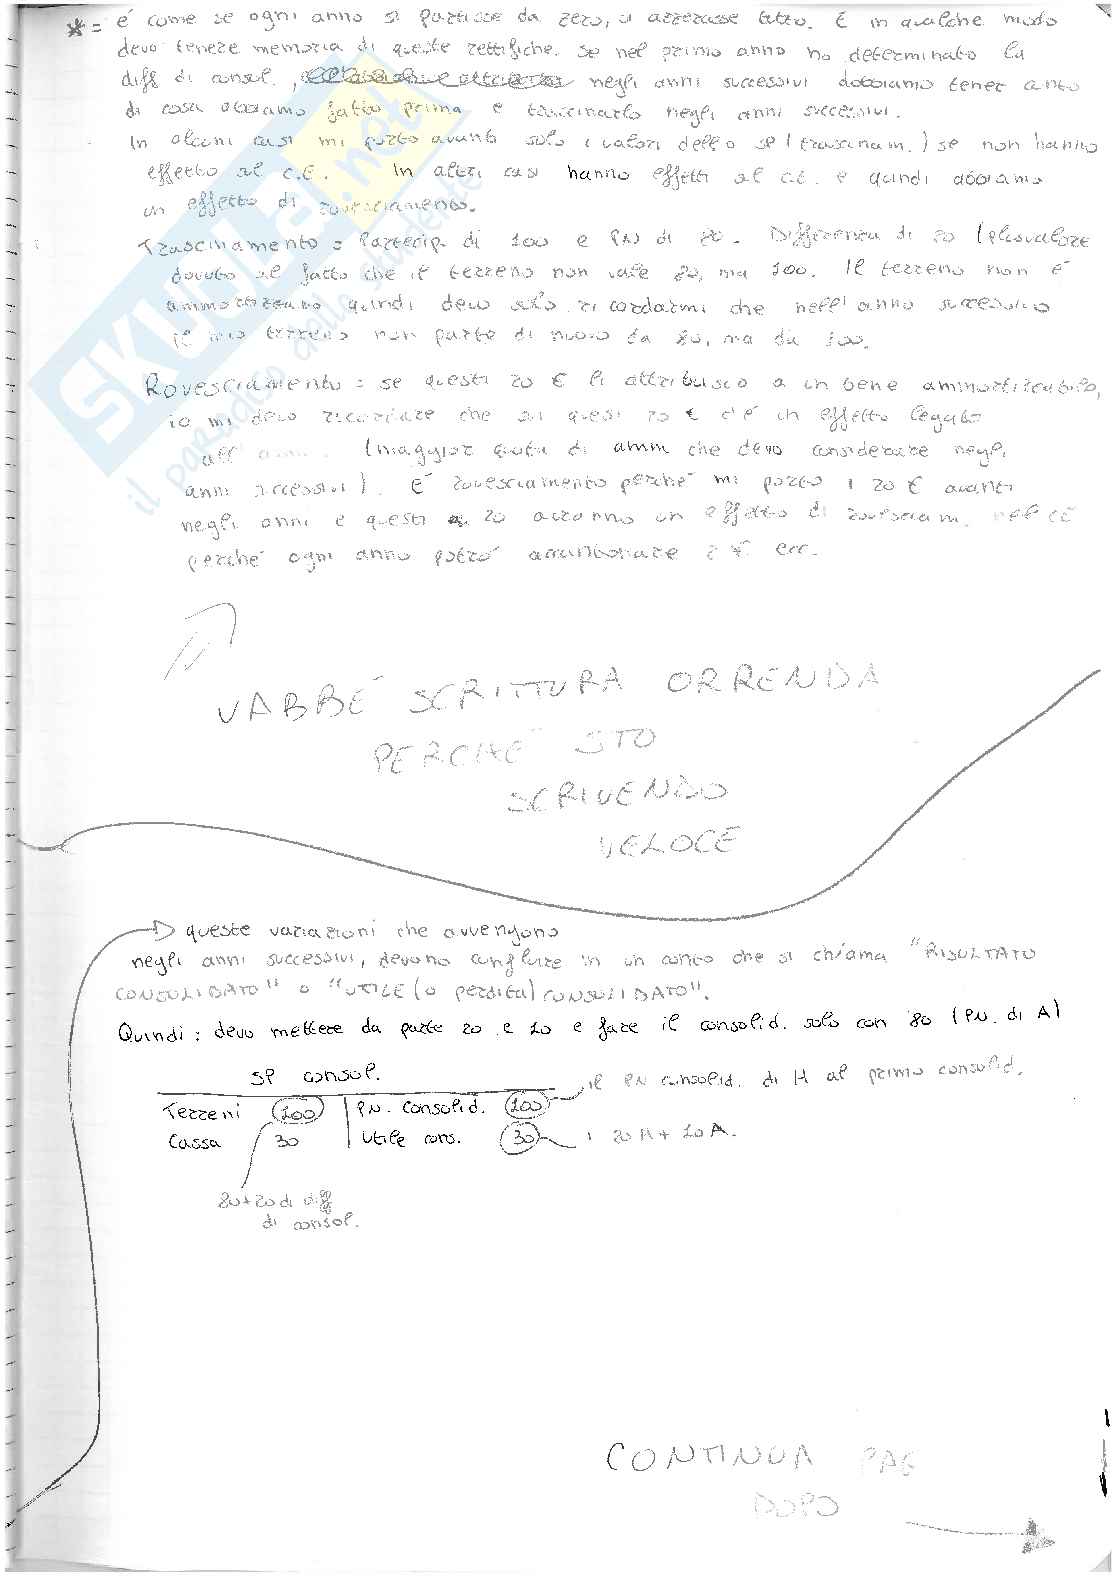 * = é come se ogni anno si partisse da zero, si azzerasse tutto. E in qualche modo
devo tenere memoria di queste rettifiche. Se nel primo anno ho determinato la
diff di consol., negli anni successivi dobbiamo tener conto
di cosa abbiamo fatto prima e trascinarlo negli anni successivi.
In alcuni casi mi porto avanti solo i valori dello SP (trascinam.) se non hanno
effetto al C.E. In altri casi hanno effetti al C.E. e quindi abbiamo
un effetto di rovesciamento.
Trascinamento = Partecip. di 100 e PN di 80. Differenza di 20 (plusvalore
dovuto al fatto che il terreno non vale 80, ma 100. Il terreno non è
ammortizzato quindi devo solo ricordarmi che nell'anno successivo
il mio terreno non parte di nuovo da 80, ma da 100.
Rovesciamento = se questi 20 € li attribuisco a un bene ammortizzabile,
io mi devo ricordare che su questi 20 € c'é un effetto legato
all'amm. (maggior quota di amm che devo considerare negli
anni successivi). É rovesciamento perché mi porto i 20 € avanti
negli anni e questi 20 avranno un effetto di rovesciam. nel CE
perché ogni anno potró ammortizzare 2 € ecc.
VABBÉ SCRITTURA ORRENDA
PERCHÉ STO
SCRIVENDO
VELOCE
queste variazioni che avvengono
negli anni successivi, devono confluire in un conto che si chiama "RISULTATO
CONSOLIDATO" o "UTILE (o perdita) CONSOLIDATO".
Quindi: devo mettere da parte 20 e 10 e fare il consolid. solo con 80 (P.N. di A)
SP consol.
il PN consolid. di H al primo consolid.
Terreni 100 P.N. consolid. 100
Cassa 30 Utile cons. 30 i 20 A + 10 A.
80+20 di diff
di consol.
CONTINUA PAG
DOPO
SKUOLA.net
il paradiso dello studente